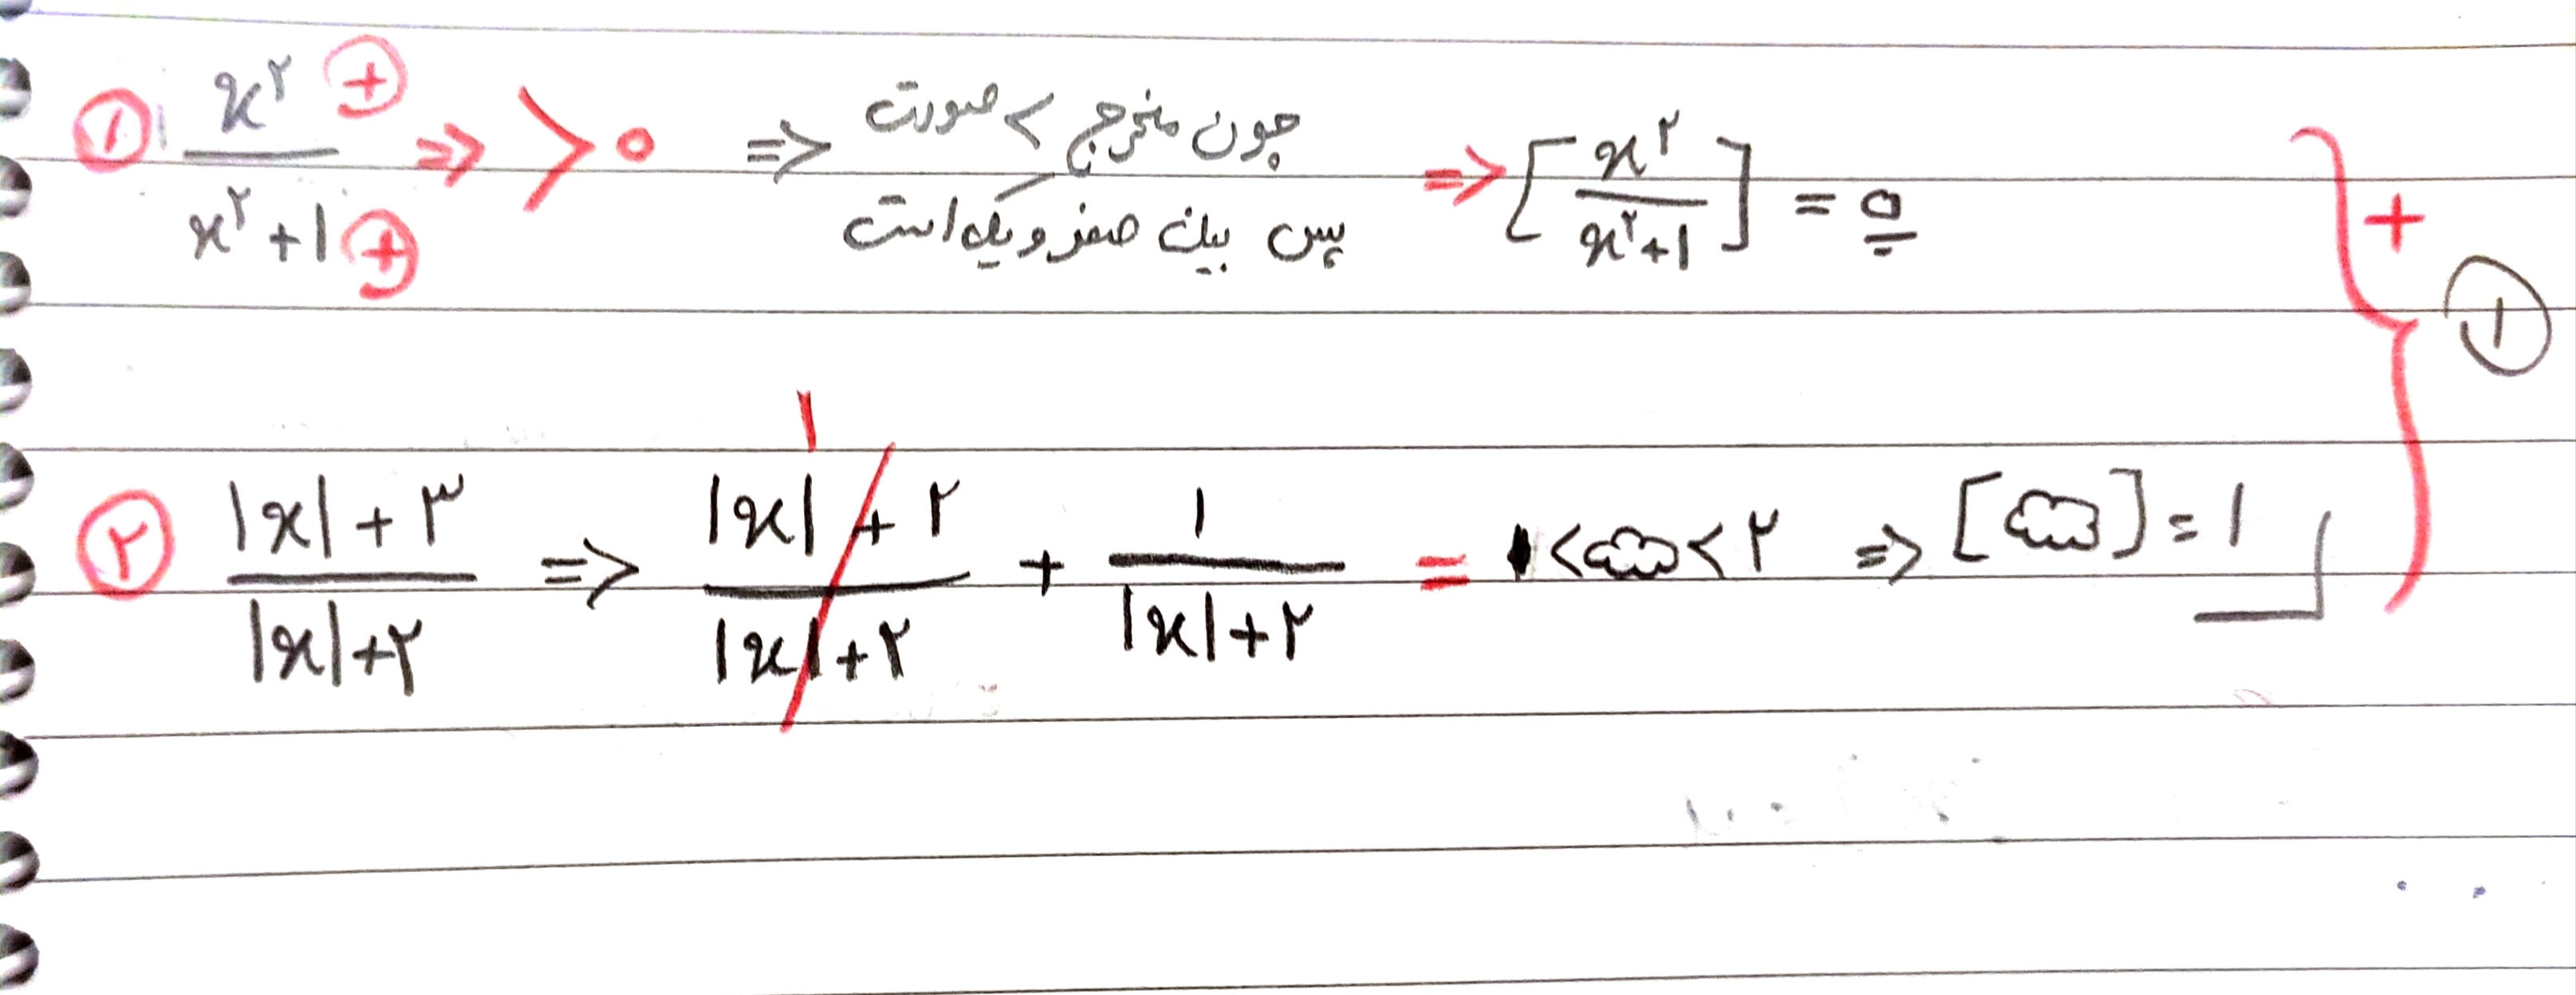 ① x^۲ ⊕ / x^۲ + ۱ ⊕ ⇒ > ۰ ⇒ چون مخرج > صورت
پس بین صفر و یک است ⇒ [x^۲ / x^۲+۱] = ۰
} + ①
② |x| + ۳ / |x| + ۲ ⇒ |x| + ۲ / |x| + ۲ ۱ + ۱ / |x| + ۲ = ۱ < ☁ < ۲ ⇒ [☁] = ۱